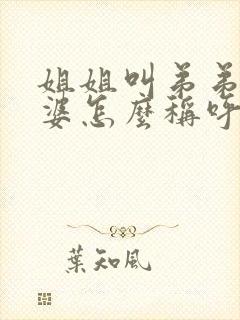 姐姐叫弟弟
婆怎麼稱呼
葉知風